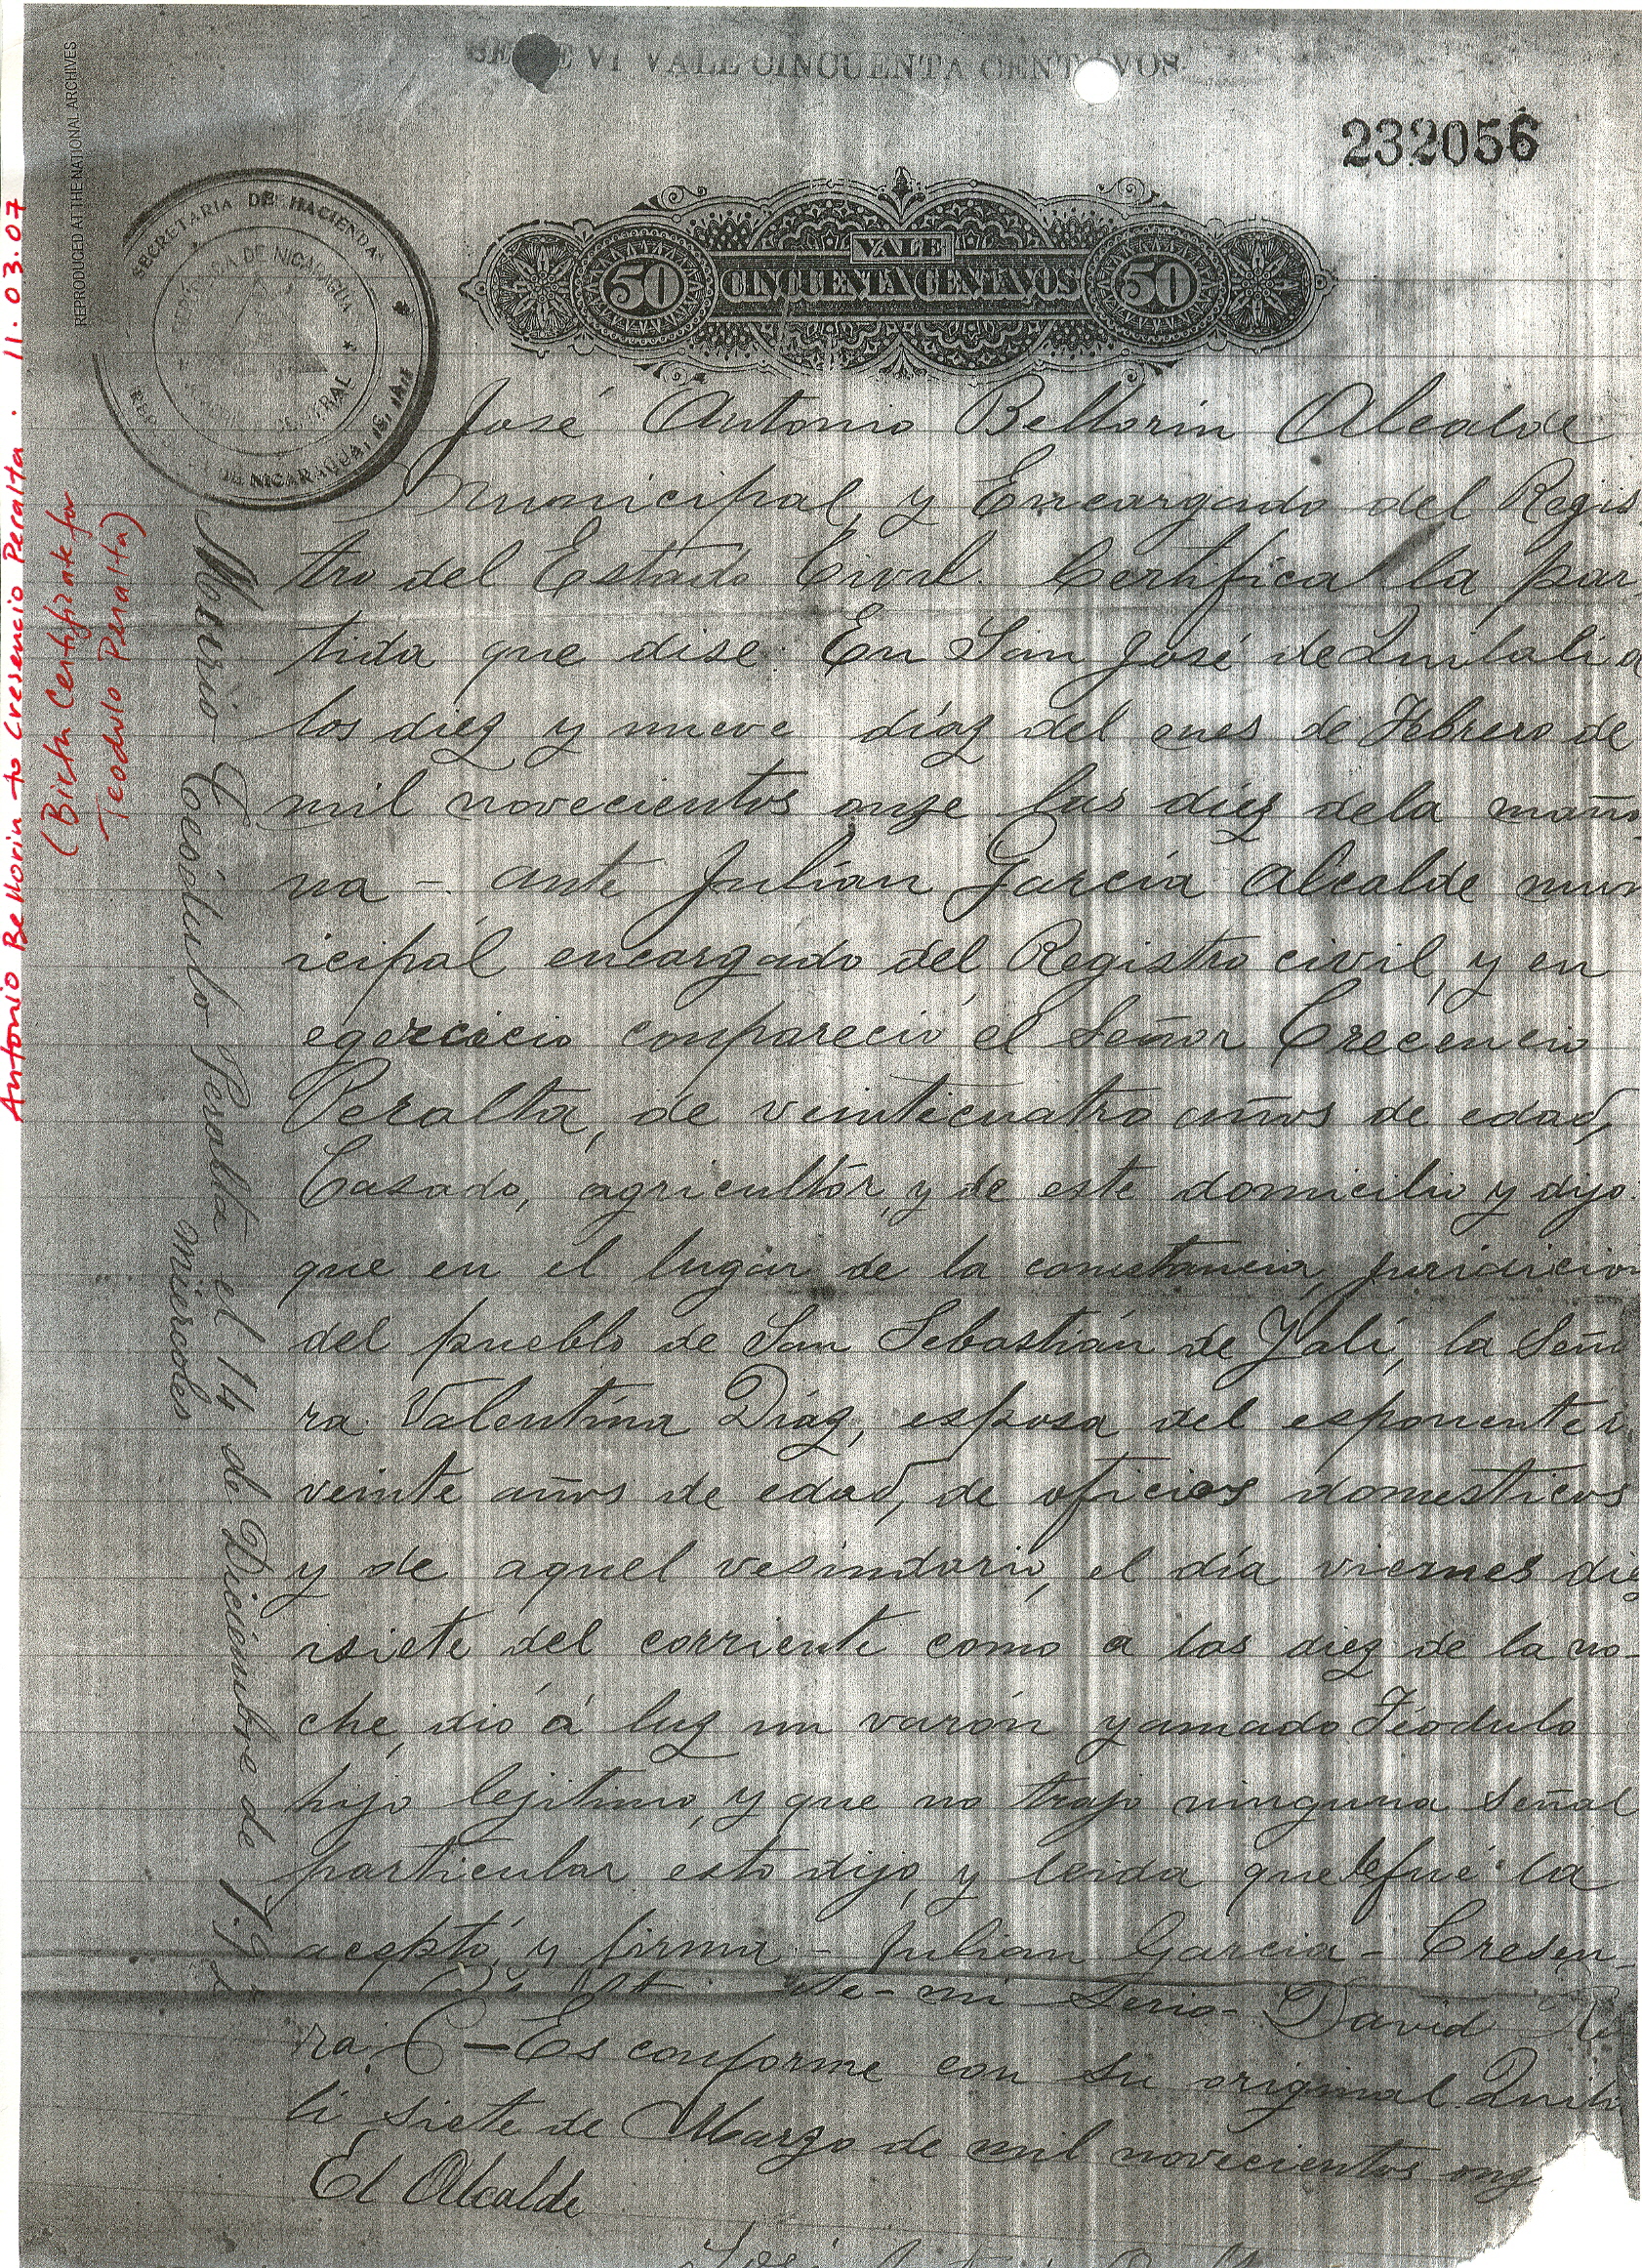 VI VALE CINCUENTA CENTAVOS
232056
REPRODUCED AT THE NATIONAL ARCHIVES
SECRETARIA DE HACIENDA
DE NICARAGUA
VALE
50 CINCUENTA CENTAVOS 50
Antonio Bellorin to Cresencio Peralta. 11.03.07
(Birth Certificate for
Teodulo Peralta)
José Antonio Bellorin Alcalde
Municipal, y Encargado del Regis
tro del Estado Civil. Certifica la par
tida que dise: En San José de Quilali a
los diez y nueve díaz del mes de Febrero de
mil novecientos onze las diez dela maña
na - ante Julián García Alcalde mun
icipal encargado del Registro civil, y en
egercicio compareció el Señor Crecencio
Peralta, de veinticuatro años de edad,
Casado, agricultór, y de este domicilio y dijo:
que en el lugar de la constancia, juridicion
del pueblo de San Sebastián de Yalí, la Seño
ra Valentína Díaz, esposa del esponente
veinte años de edad, de oficios domesticos
y de aquel vesindario, el día viernes diez
isiete del corriente como a las diez de la no-
che, dió á luz un varón yamado Téodulo
hijo lejitimo, y que no trajo ninguna señal
particular esto dijo, y leida que le fué la
aceptó, y firma - Julian Garcia - Cresen
mi Serio- David
ra C - Es conforme con su original. Quila
li siete de Marzo de mil novecientos onz
El Alcalde
Murio Teódulo Peralta el 14 de Diciembre de
miercoles